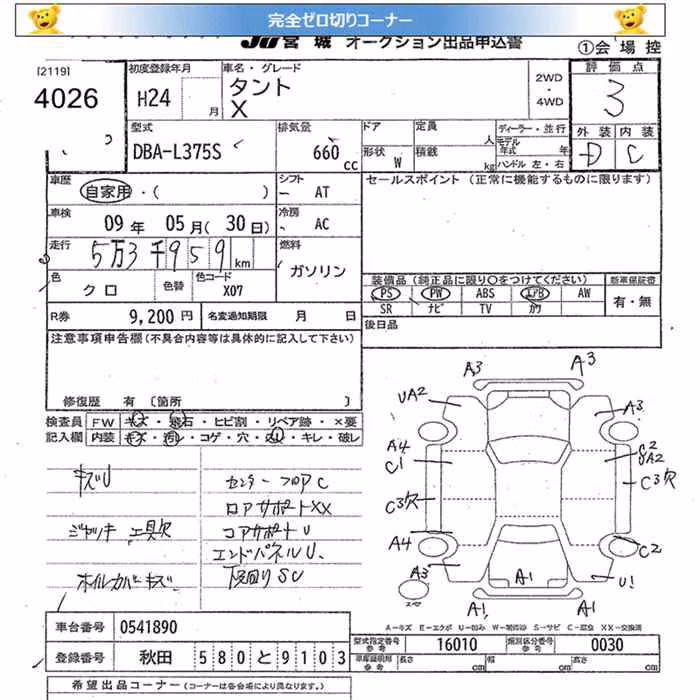 完全ゼロ切りコーナー
JU宮城 オークション出品申込書
①会場控
[2119]
4026
初度登録年月
H24 月
車名・グレード
タント
X
2WD
・
4WD
評価点
3
型式
DBA-L375S
排気量
660 cc
ドア
形状 W
定員 人
積載 kg
ディーラー・並行
モデル年式 年
ハンドル 左・右
外装 内装
D C
車歴
自家用・( )
シフト
AT
セールスポイント (正常に機能するものに限ります)
車検
09 年 05 月(30 日)
冷房
AC
走行
5万3千959 km
燃料
ガソリン
色
クロ
色替
色コード
X07
装備品(純正品に限り○をつけてください)
新車保証書
PS PW ABS エアB AW
有・無
SR ナビ TV カワ
R券 9,200 円
名変通知期限 月 日
後日品
注意事項申告欄(不具合内容等は具体的に記入して下さい)
修復歴 有 〔箇所 〕
検査員 FW キズ・飛石・ヒビ割・リペア跡・×要
記入欄 内装 キズ・汚レ・コゲ・穴・凹レ・キレ・破レ
キズU
センターフロアC
ロアサポートXX
ジャッキ 工具欠
コアサポートU
エンドパネルU.
ホイルカバーキズ
下回りSC
A3 A3
UA2 A3
A4
C1
C2
UA2
C3欠 C3欠
A4 C2
A3 A1 U1
A1 A1
A−キズ E−エクボ U−凹み W−補修跡 S−サビ C−腐食 XX−交換済
車台番号 0541890
登録番号 秋田 580 と 9103
型式指定番号 参考 16010
類別区分番号 参考 0030
車庫証明用 参考 長さ cm 幅 cm 高さ cm
希望出品コーナー(コーナーは各会場により異なります。)